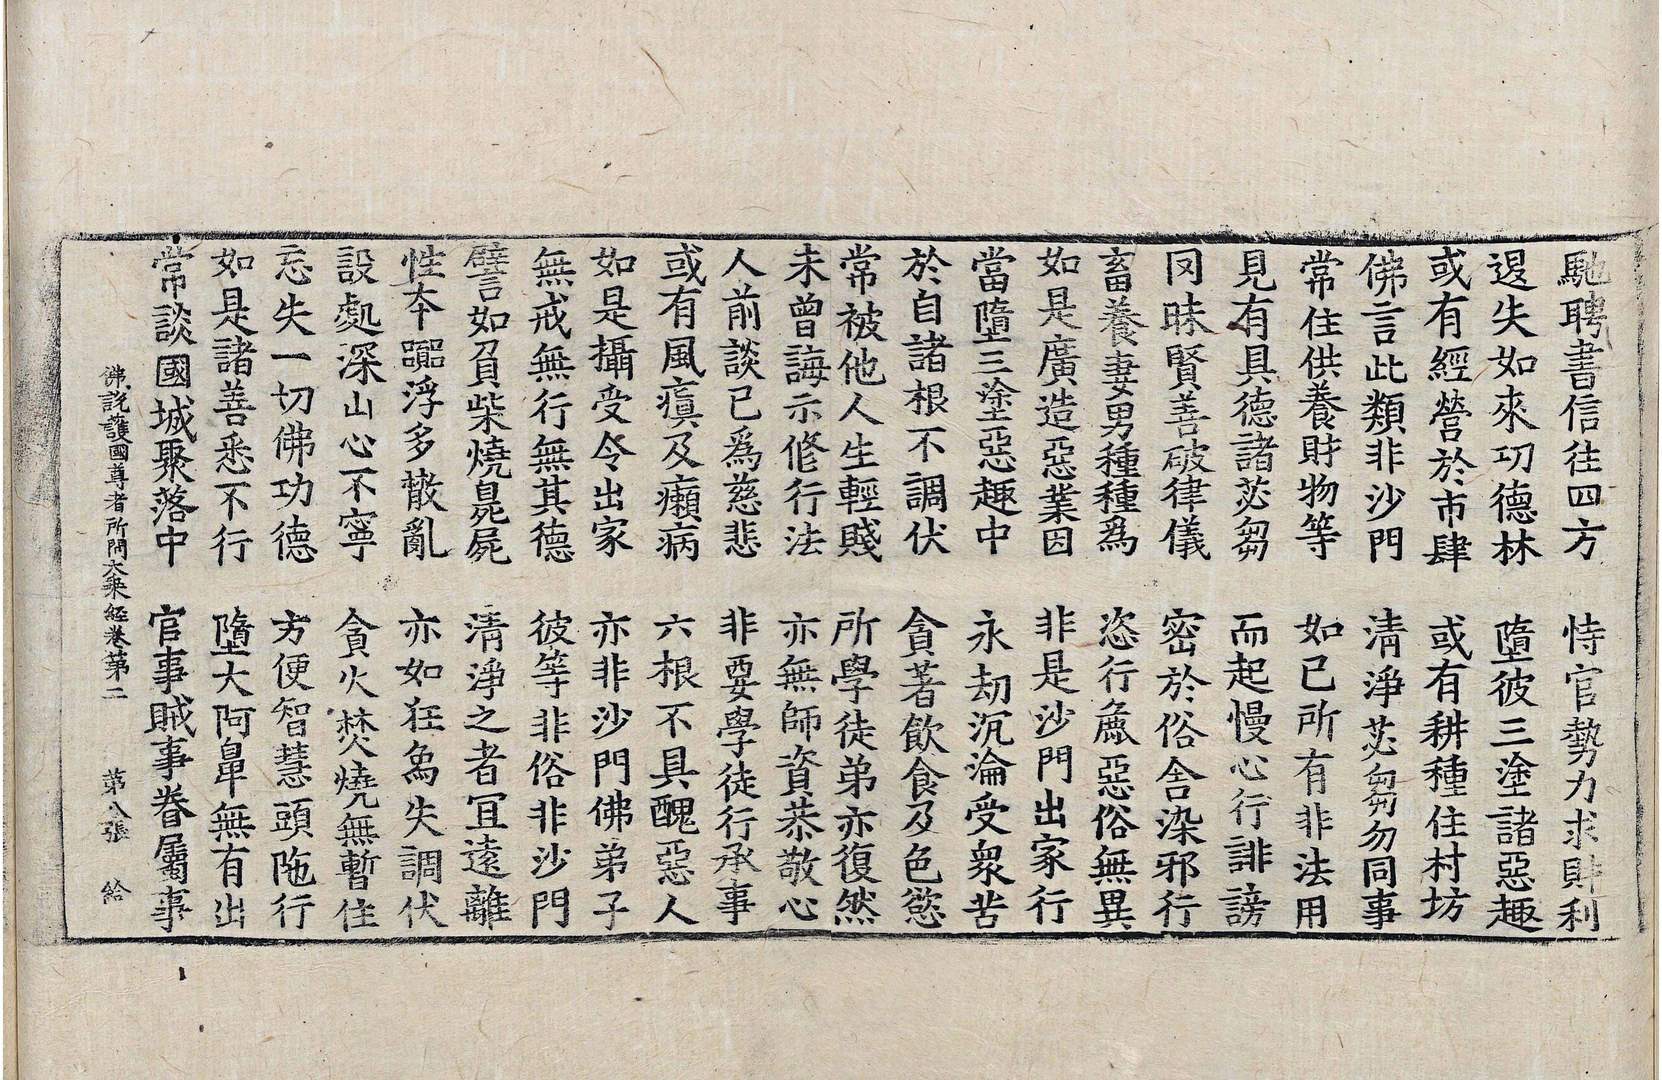 馳聘書信往四方　恃官勢力求財利
退失如來功德林　墮彼三塗諸惡趣
或有經營於市肆　或有耕種住村坊
佛言此類非沙門　清淨苾芻勿同事
常住供養財物等　如已所有非法用
見有具德諸苾芻　而起慢心行誹謗
罔昧賢善破律儀　密於俗舍染邪行
畜養妻男種種為　恣行麁惡俗無異
如是廣造惡業因　非是沙門出家行
當墮三塗惡趣中　永劫沉淪受衆苦
於自諸根不調伏　貪著飲食及色慾
常被他人生輕賤　所學徒弟亦復然
未曾誨示修行法　亦無師資恭敬心
人前談已為慈悲　非要學徒行承事
或有風瘨及癩病　六根不具醜惡人
如是攝受令出家　亦非沙門佛弟子
無戒無行無其德　彼等非俗非沙門
譬言如負柴燒臰屍　清淨之者冝遠離
性本踰浮多散亂　亦如狂象失調伏
設處深山心不寧　貪火焚燒無暫住
忘失一切佛功德　方便智慧頭陁行
如是諸善悉不行　墮大阿鼻無有出
常談國城聚落中　官事賊事眷屬事
佛說護國尊者所問大乘經卷第二　第八張　給